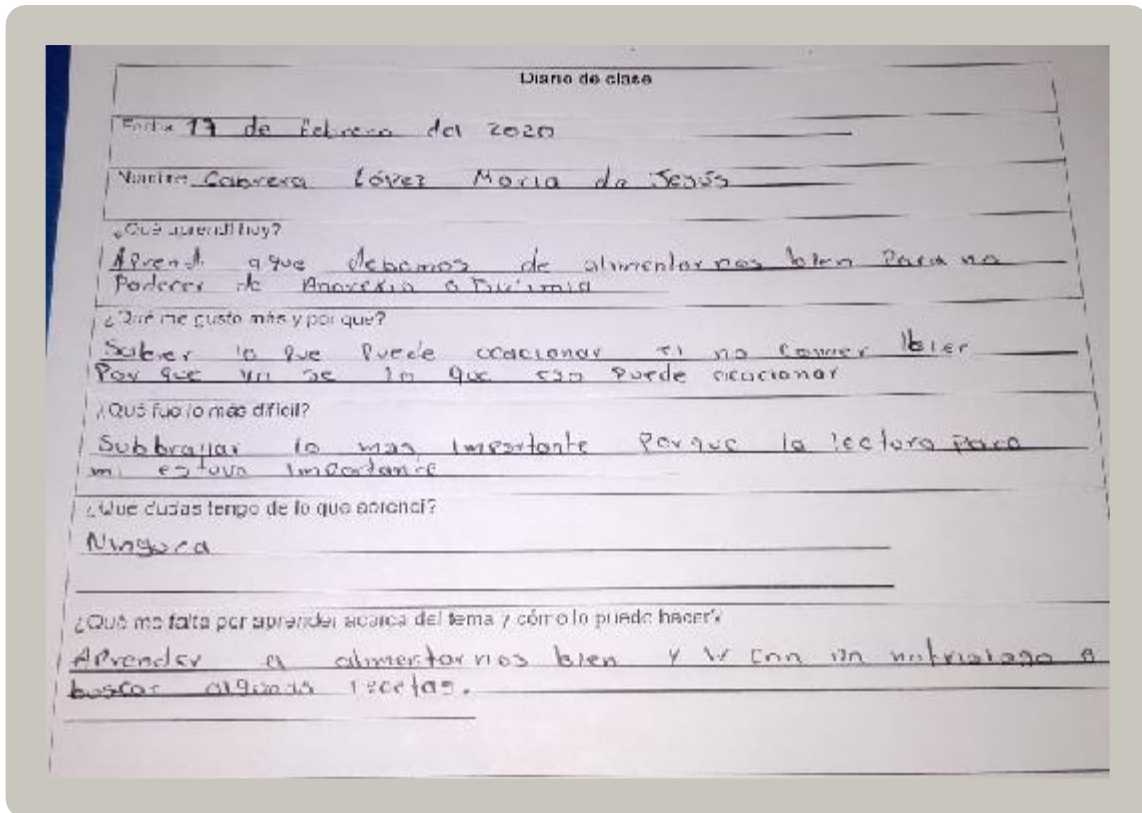 Diario de clase
Fecha 17 de febrero del 2020
Nombre Cabrera López Maria de Jesús
¿Qué aprendí hoy?
Aprendi aque debemos de alimentarnos bien Para no
Padecer de Anorexia o Bulimia
¿Qué me gusto más y por que?
Saber lo que Puede ocacionar si no comer bien
Por que ya se lo que eso Puede ocacionar
¿Qué fue lo más difícil?
Subbrayar lo mas importante Porque la lectura Para
mi estuvo importante
¿Que dudas tengo de lo que aprendí?
Ninguna
¿Qué me falta por aprender acerca del tema y cómo lo puedo hacer?
APrender a alimentarnos bien y ir con un nutriologo a
buscar algunas recetas.